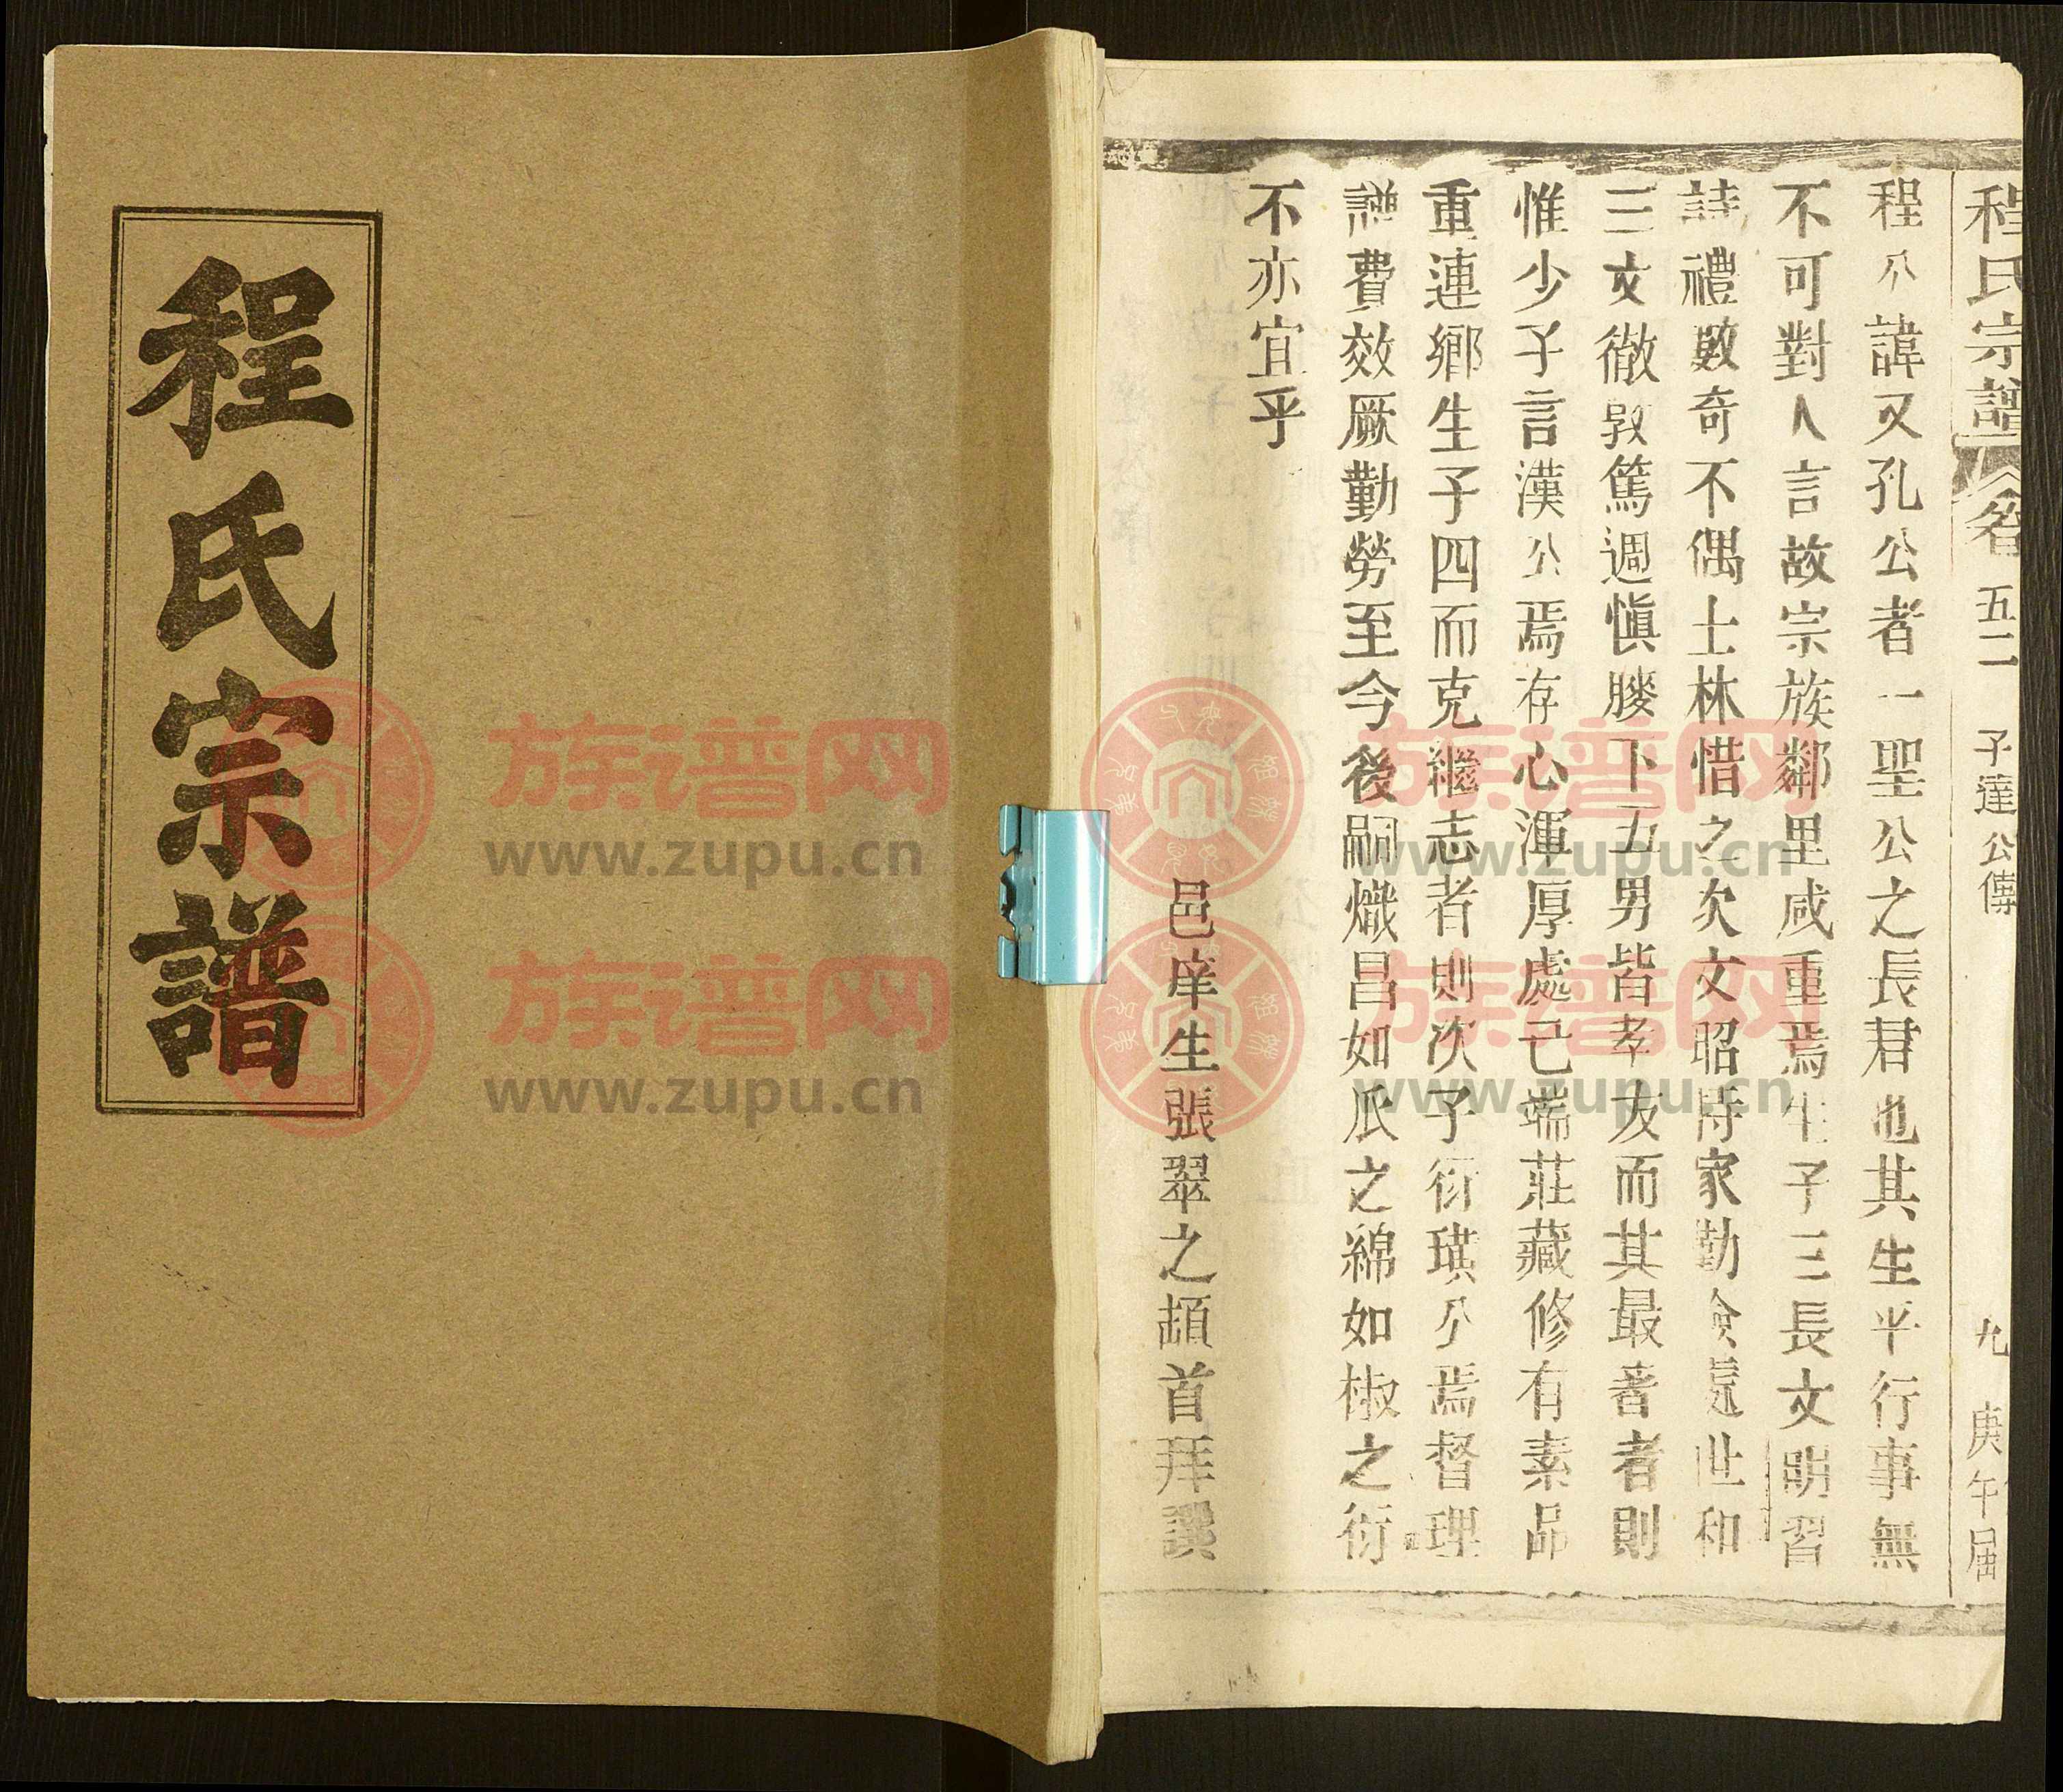 程氏宗譜
程氏宗譜 卷五二 子達公傳 九 庚午屆
程公諱又孔公者一聖公之長君也其生平行事無
不可對人言故宗族鄰里咸重焉生子三長文明習
詩禮數奇不偶士林惜之次文昭持家勤儉處世和
三文徹敦篤週慎膝下五男皆孝友而其最著者則
惟少子言漢公焉存心渾厚處己端莊藏修有素品
重連鄉生子四而克繼志者則次子衍璜公焉督理
譜費效厥勤勞至今後嗣熾昌如瓜之綿如椒之衍
不亦宜乎
邑庠生張翠之頓首拜譔
族谱网
www.zupu.cn
族谱网
www.zupu.cn
族谱网
www.zupu.cn
族谱网
www.zupu.cn